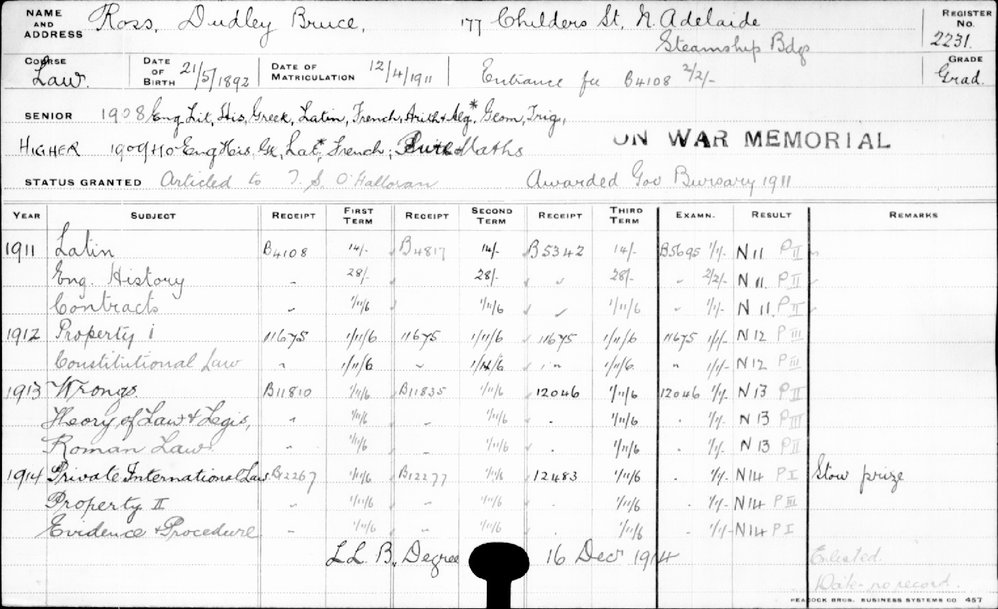 NAME AND ADDRESS Ross, Dudley Bruce, 177 Childers St, N. Adelaide REGISTER No.
Steamship Bdgs 2231.
COURSE Law. DATE OF BIRTH 21/5/1892 DATE OF MATRICULATION 12/4/1911 Entrance fee B4108 2/2/- GRADE Grad.
SENIOR 1908 Eng Lit, His, Greek, Latin, French, Arith & Alg*, Geom, Trig,
HIGHER 1909+10 Eng His, Gk, Lat*, French, Pure Maths ON WAR MEMORIAL
STATUS GRANTED Articled to T. S. O'Halloran Awarded Gov Bursary 1911
YEAR SUBJECT RECEIPT FIRST TERM RECEIPT SECOND TERM RECEIPT THIRD TERM EXAMN. RESULT REMARKS
1911 Latin B4108 14/- B4817 14/- B5342 14/- B5695 1/1/- N 11 P II
Eng. History " 28/- 28/- 28/- " 2/2/- N 11. P II
Contracts " 1/11/6 1/11/6 " 1/11/6 " 1/1/- N 11. P II
1912 Property I 11675 1/11/6 11675 1/11/6 11675 1/11/6 11675 1/1/- N 12 P III
Constitutional Law " 1/11/6 " 1/11/6 " 1/11/6 " 1/1/- N 12 P III
1913 Wrongs B11810 1/11/6 B11835 1/11/6 12046 1/11/6 12046 1/1/- N 13 P II
Theory of Law & Legis, " 1/11/6 " 1/11/6 " 1/11/6 " 1/1/- N 13 P III
Roman Law " 1/11/6 " 1/11/6 " 1/11/6 " 1/1/- N 13 P II
1914 Private International Law B12267 1/11/6 B12277 1/11/6 12483 1/11/6 " 1/1/- N 14 P I Stow prize
Property II " 1/11/6 " 1/11/6 1/11/6 " 1/1/- N 14 P III
Evidence & Procedure " 1/11/6 " 1/11/6 1/11/6 " 1/1/- N 14 P I
LL. B. Degree 16 Dec 1914 Enlisted.
Date - no record.
PEACOCK BROS. BUSINESS SYSTEMS CO 457